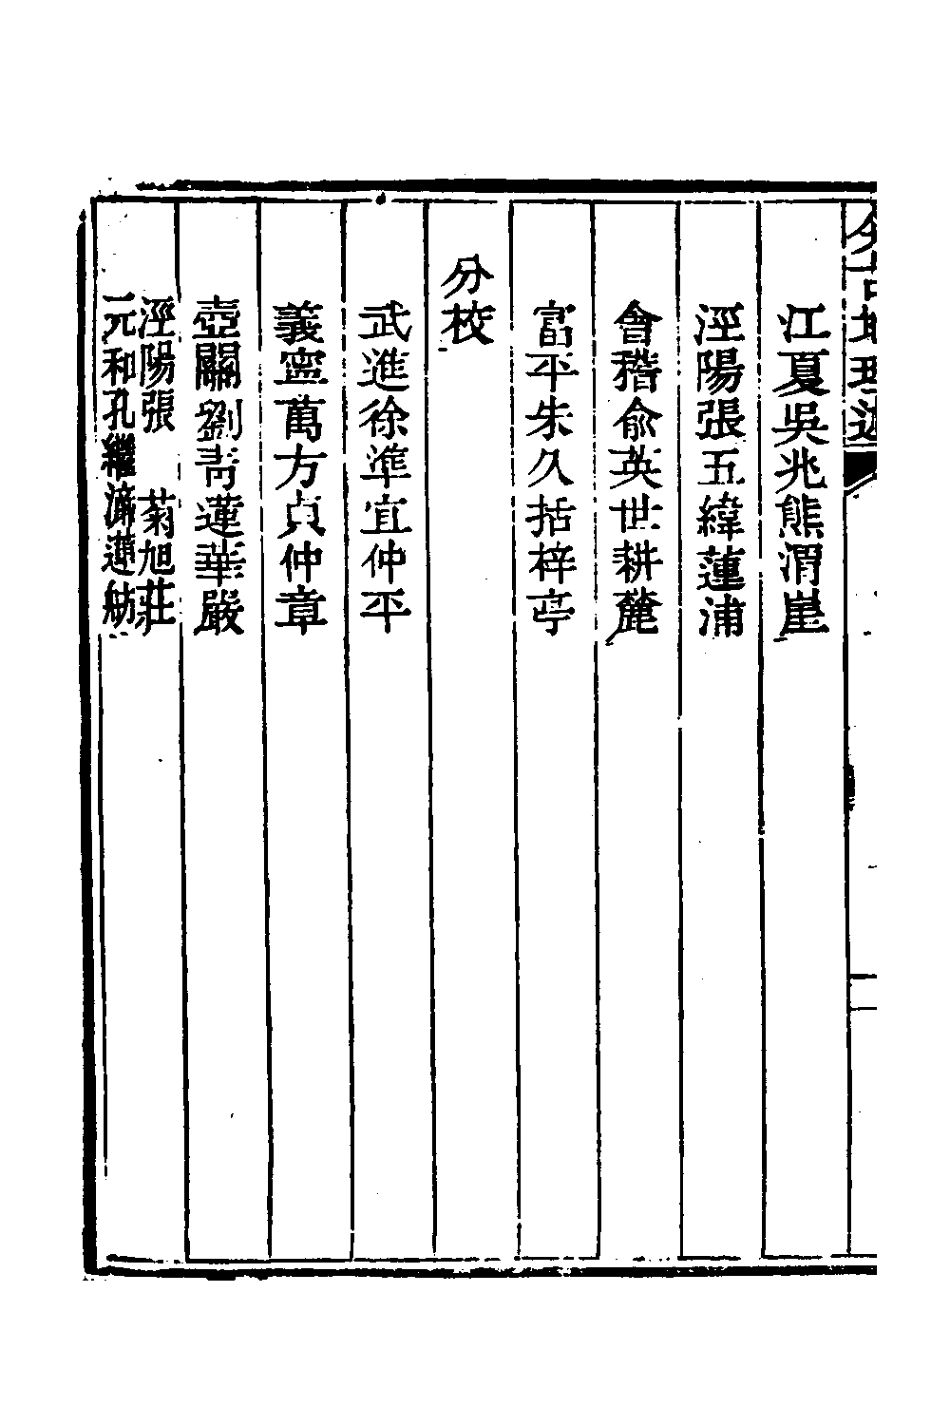 今古地理述
江夏吳兆熊渭崖
涇陽張五緯蓮浦
會稽俞英世耕麓
富平朱久括梓亭
分校
武進徐準宜仲平
義寧萬方貞仲章
壺關劉青蓮華嚴
涇陽張 菊旭莊
元和孔繼濂蓮舫